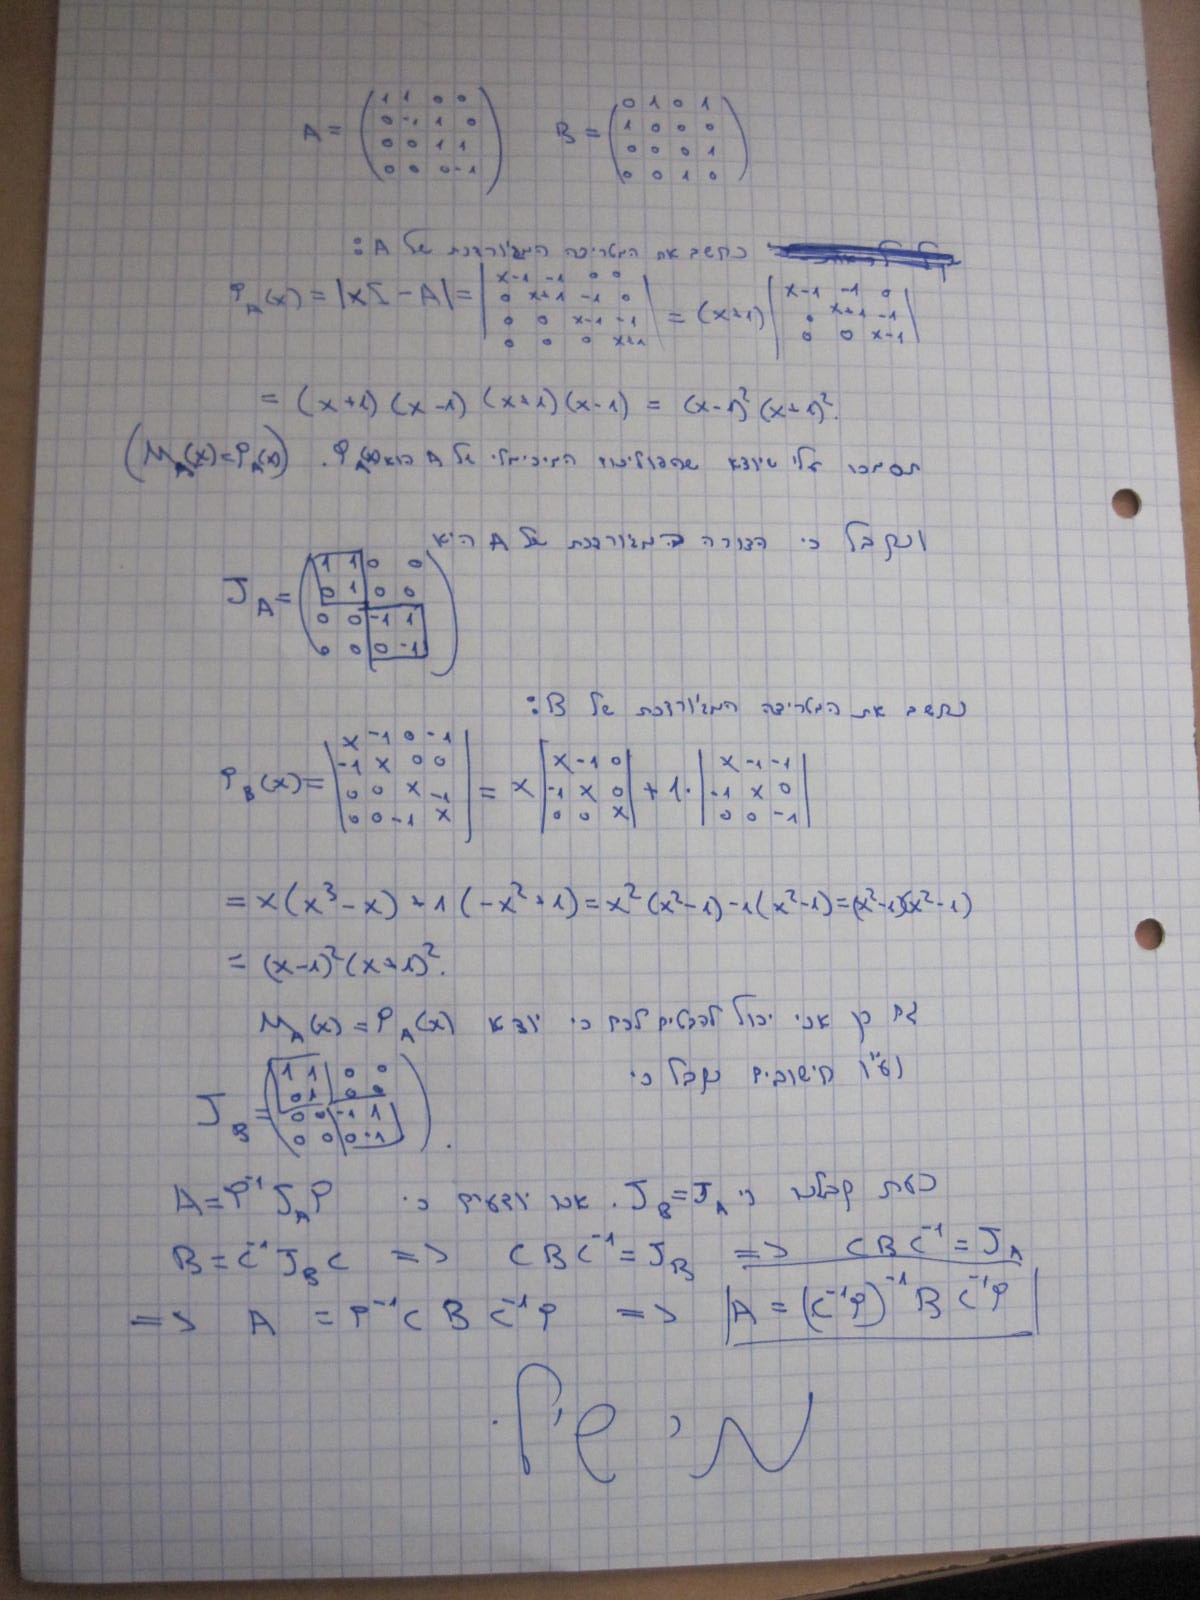 A = (1 1 0 0 / 0 -1 1 0 / 0 0 1 1 / 0 0 0 -1) B = (0 1 0 1 / 1 0 0 0 / 0 0 0 1 / 0 0 1 0)
נחשב את המטריצה המג'ורדנת של A:
P_A(x) = |xI - A| = |x-1 -1 0 0 / 0 x+1 -1 0 / 0 0 x-1 -1 / 0 0 0 x+1| = (x+1) |x-1 -1 0 / 0 x+1 -1 / 0 0 x-1|
= (x+1)(x-1)(x+1)(x-1) = (x-1)²(x+1)².
תסמכו עלי שיוצא שהפולינום המינימלי של A הוא P_A(x). (M_A(x)=P_A(x))
ונקבל כי הצורה המג'ורדנת של A היא
J_A = (1 1 0 0 / 0 1 0 0 / 0 0 -1 1 / 0 0 0 -1)
נחשב את המטריצה המג'ורדנת של B:
P_B(x) = |x -1 0 -1 / -1 x 0 0 / 0 0 x -1 / 0 0 -1 x| = x |x -1 0 / -1 x 0 / 0 0 x| + 1· |x -1 -1 / -1 x 0 / 0 0 -1|
= x(x³-x) + 1(-x²+1) = x²(x²-1) -1(x²-1) = (x²-1)(x²-1)
= (x-1)²(x+1)².
גם כן אני יכול להבטיח לכם כי יוצא M_A(x) = P_A(x)
וע"י חישובים נקבל כי
J_B = (1 1 0 0 / 0 1 0 0 / 0 0 -1 1 / 0 0 0 -1).
כעת קבלנו כי J_B = J_A. אנו יודעים כי A = P⁻¹ J_A P
B = C⁻¹ J_B C => C B C⁻¹ = J_B => C B C⁻¹ = J_A
=> A = P⁻¹ C B C⁻¹ P => A = (C⁻¹P)⁻¹ B C⁻¹P